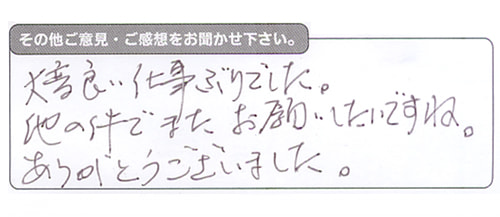 その他ご意見・ご感想をお聞かせ下さい。
大変良い仕事ぶりでした。
他の件でまたお願いしたいですね。
ありがとうございました。